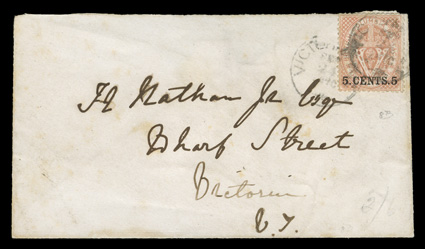 VICTO
5. CENTS. 5
H Nathan Jr Esqr
Wharf Street
Victoria
V. I.